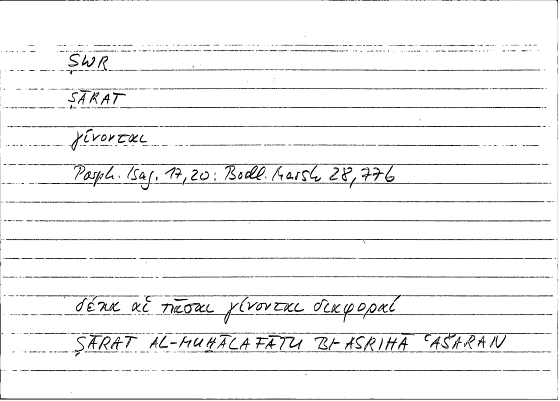 ṢWR
ṢĀRAT
γίνονται
Porph. Isag. 17,20: Bodl. Marsh 28,776
δέκα αἱ πᾶσαι γίνονται διαφοραί
ṢĀRAT AL-MUḪĀLAFĀTU BI-ASRIHĀ ʿAŠARAN